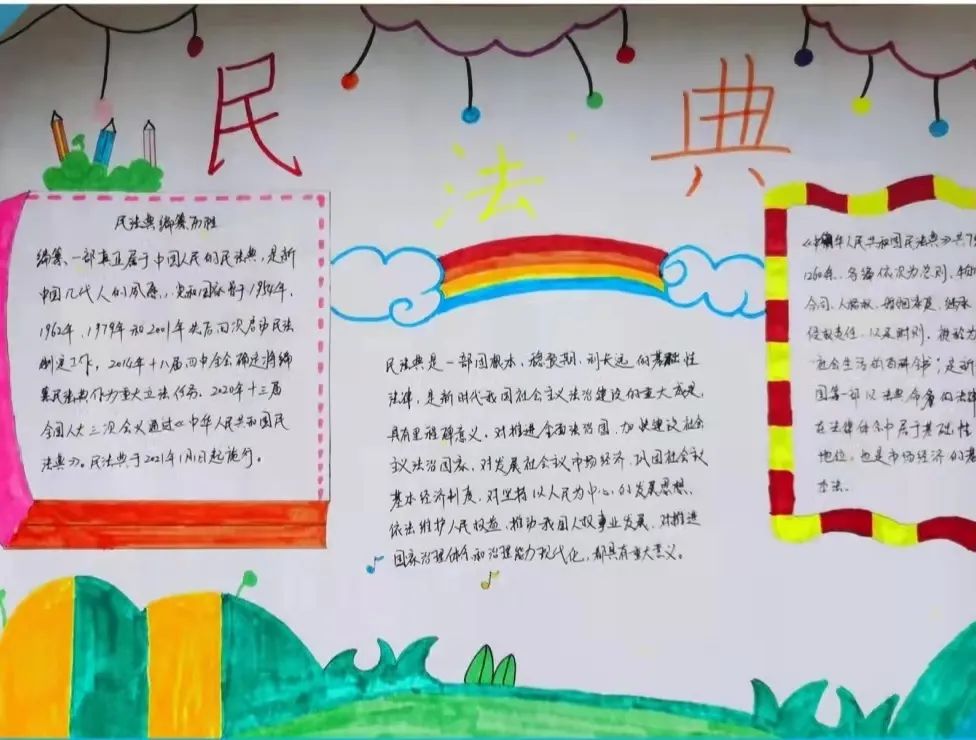 民法典
民法典编纂历程
编纂一部真正属于中国人民的民法典,是新
中国几代人的夙愿,党和国家曾于1954年、
1962年、1979年和2001年先后四次启动民法
制定工作。2014年十八届四中全会确定将编
纂民法典作为重大立法任务。2020年十三届
全国人大三次会议通过《中华人民共和国民
法典》。民法典于2021年1月1日起施行。
民法典是一部固根本、稳预期、利长远的基础性
法律,是新时代我国社会主义法治建设的重大成果,
具有里程碑意义。对推进全面法治国、加快建设社会
主义法治国家,对发展社会主义市场经济、巩固社会主义
基本经济制度,对坚持以人民为中心的发展思想、
依法维护人民权益、推动我国人权事业发展,对推进
国家治理体系和治理能力现代化,都具有重大意义。
华人民共和国民法典》共7
1260条,各编依次为总则、物
合同、人格权、婚姻家庭、继承
侵权责任、以及附则。被称为
"社会生活的百科全书",是新
国第一部以法典命名的法律
在法律体系中居于基础性
地位,也是市场经济的基
本法。